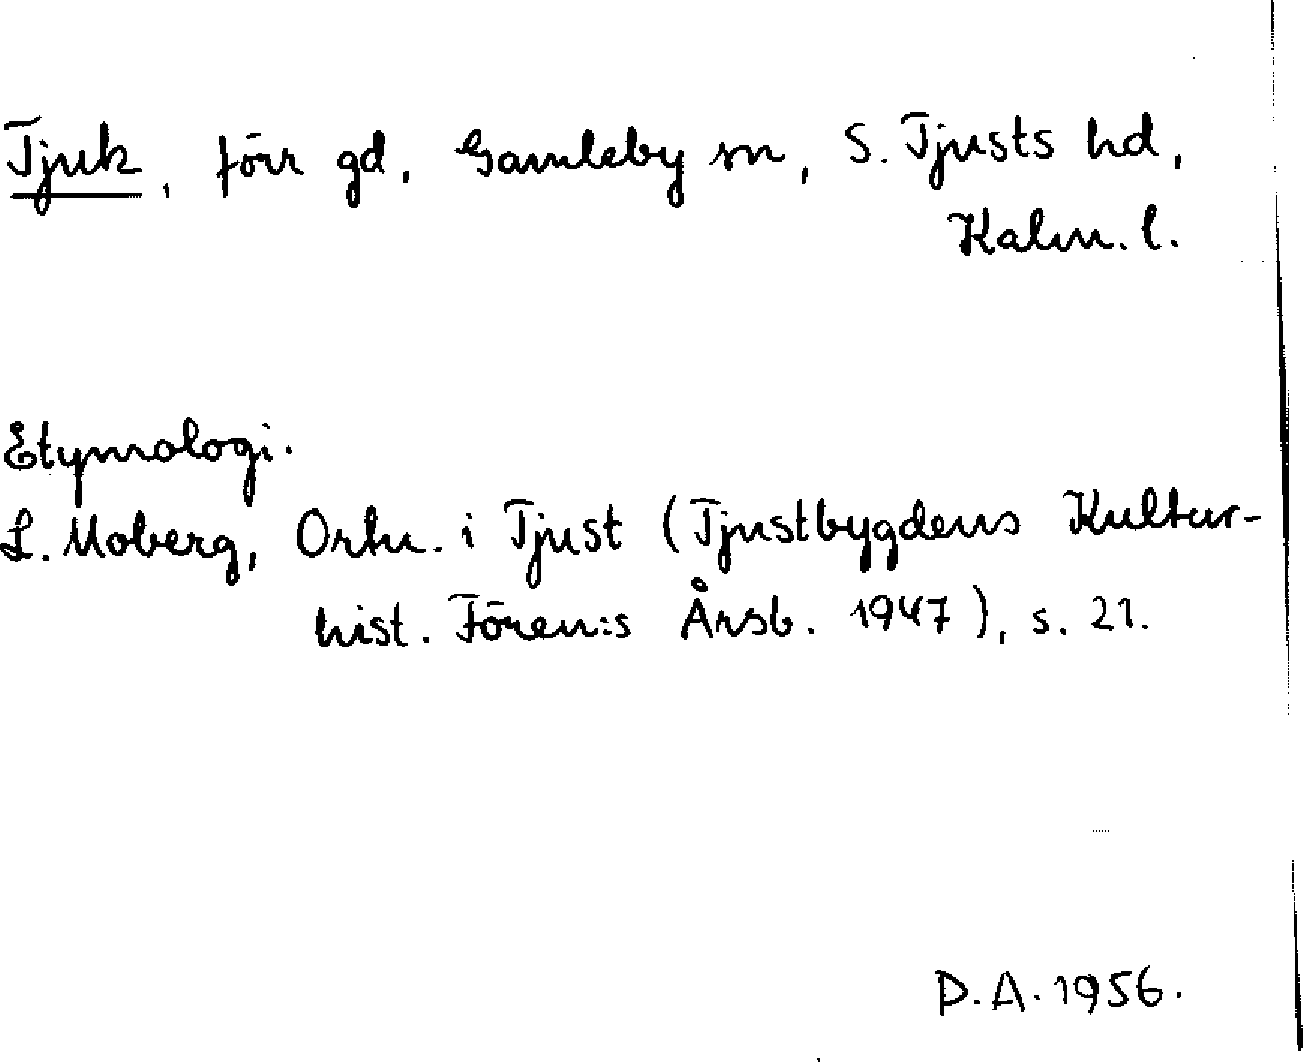 Tjuk, förr gd, Gamleby sn, S. Tjusts hd,
Kalm. l.
Etymologi.
L. Moberg, Ortn. i Tjust (Tjustbygdens Kultur-
hist. Fören:s Årsb. 1947), s. 21.
D.A. 1956.